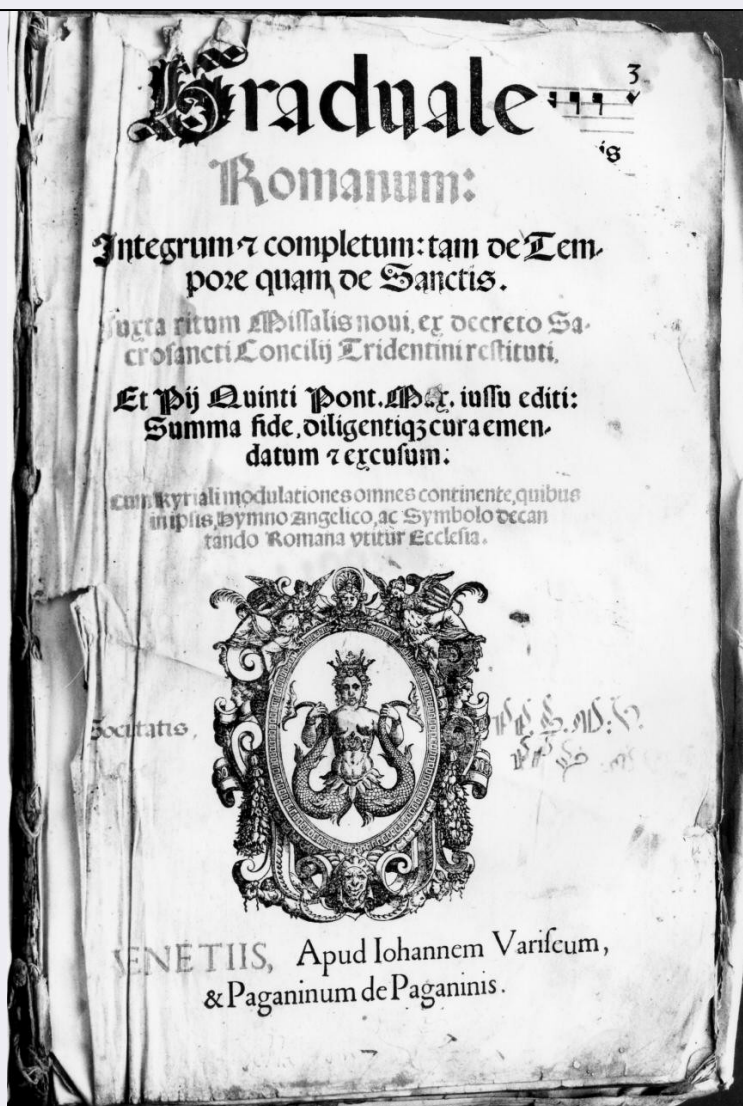 Graduale
3
is
Romanum:
Integrum ⁊ completum: tam de Tem-
pore quam de Sanctis.
Juxta ritum Missalis noui, ex decreto Sa-
crosancti Concilij Tridentini restituti.
Et Pij Quinti Pont. Max. iussu editi:
Summa fide, diligentiqꝫ cura emen-
datum ⁊ excusum:
Cum Kyriali modulationes omnes continente, quibus
in ipsis, Hymno Angelico, ac Symbolo decan
tando Romana vtitur Ecclesia.
Socitatis,
VENETIIS, Apud Iohannem Variſcum,
& Paganinum de Paganinis.